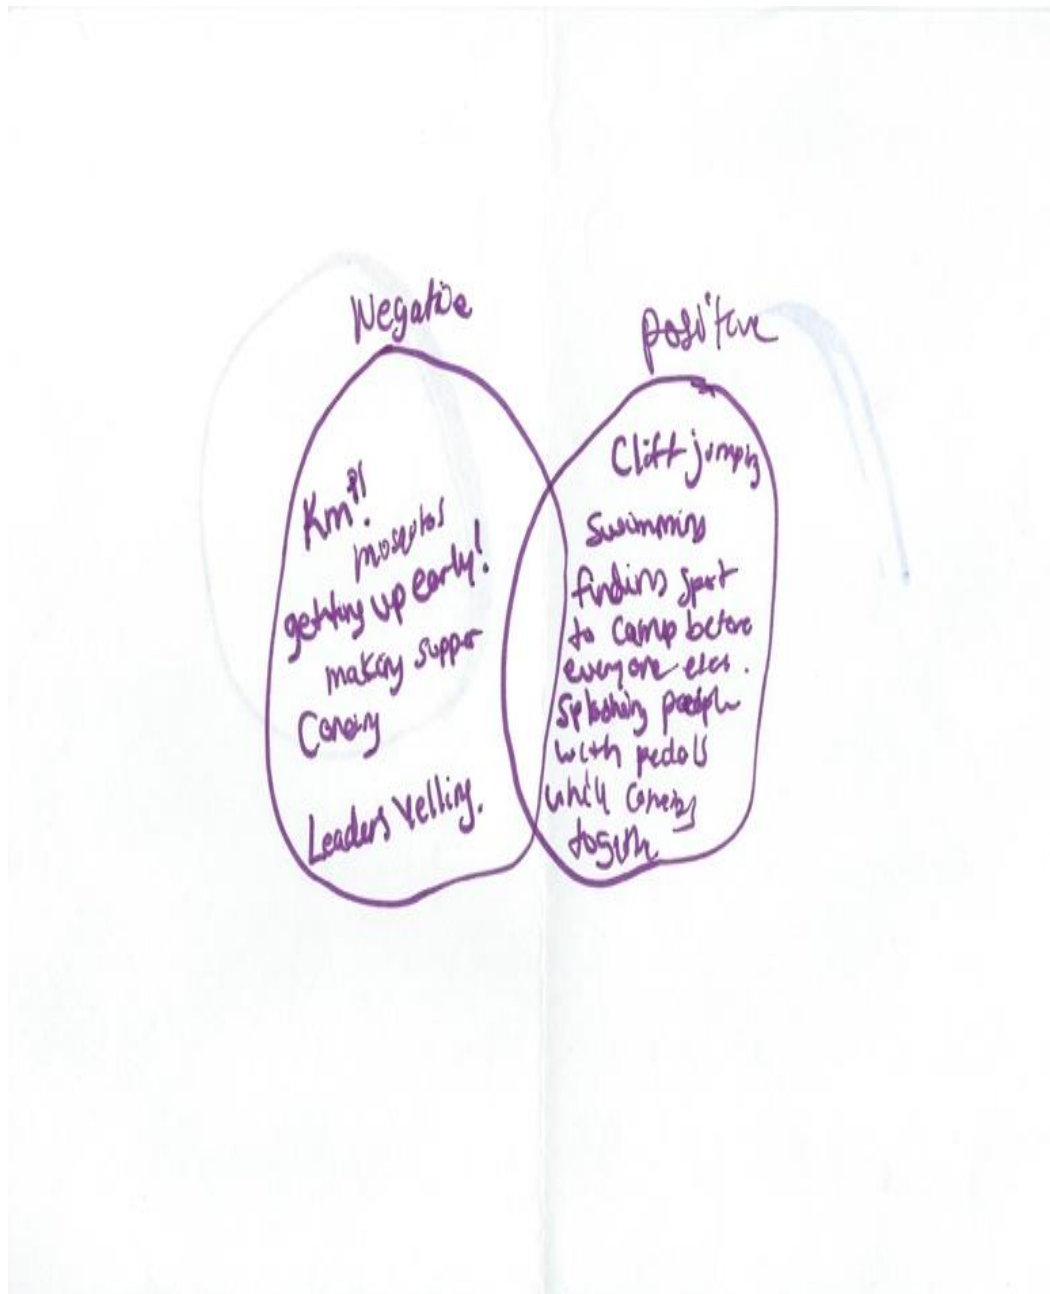 Negative
Km!!
mosqutos
getting up early!
making supper
Canoing
Leaders Yelling.
positive
Cliff jumping
Swimming
finding spot
to camp before
everyone eles.
Splashing people
with pedals
while canoeing
togethe